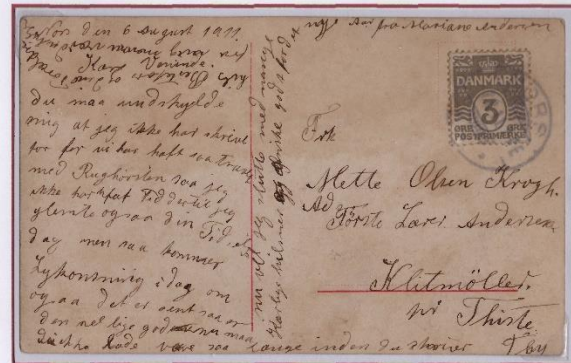 Nors den 6 August 1911.
Kær Veninde.
du maa undskylde
mig at jeg ikke har skrivet
før for vi har haft saa travlt
med Rughösten saa jeg
ikke har faat Tid dertil jeg
glemte ogsaa din Föd
dag men saa kommer
Lykönskning i dag om
ogsaa det er sent saa er
den vel lige god nu maa
du ikke lade være saa længe inden du skriver
nu vil jeg slutte med mange
Kærlige hilsner og önske god
nye Aar fra Mariane Andersen
DANMARK
3
ØRE ØRE
POSTFRIMÆRKE
Frk
Mette Olsen Krogh.
Ad
Förste Lærer Andersen
Klitmöller.
pr Thiste